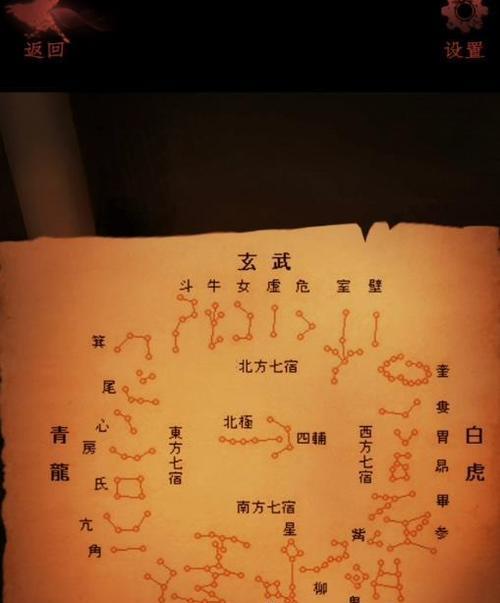 返回
设置
玄武
斗 牛 女 虛 危 室 壁
箕
尾
心
房
氐
亢
角
青龍
東方七宿
北方七宿
北極
四輔
南方七宿
西方七宿
奎
婁
胃
昴
畢
参
觜
白虎
星
柳